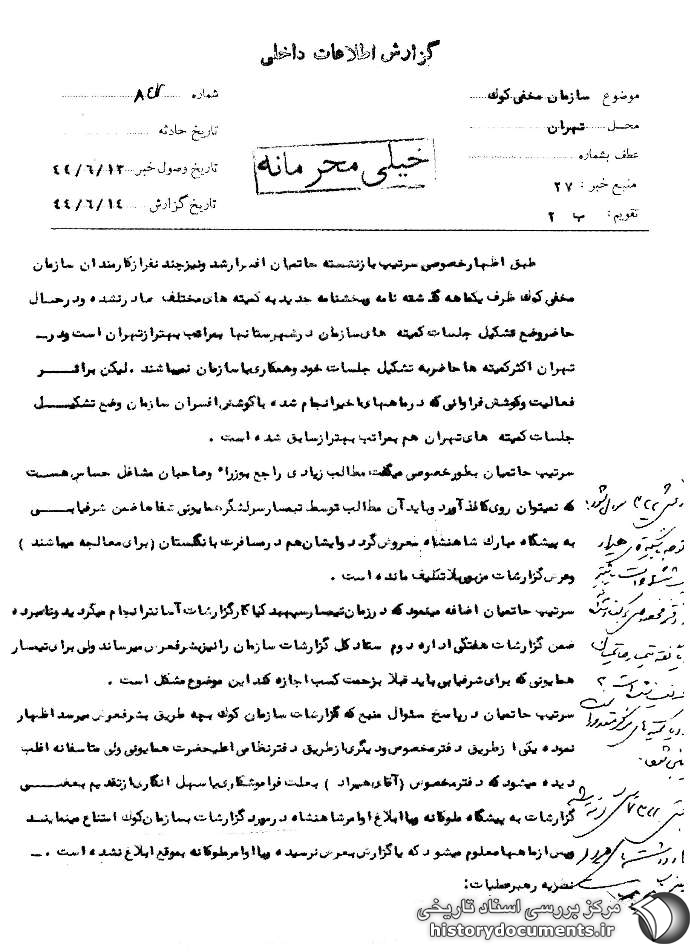 گزارش اطلاعات داخلی
موضوع سازمان مخفی کوک
محل تهران
عطف بشماره
منبع خبر : ۲۷
تقویم: ب ۲
شماره
تاریخ حادثه
تاریخ وصول خبر ۴۴/۶/۱۳
تاریخ گزارش ۴۴/۶/۱۴
خیلی محرمانه
طبق اظهار خصوصی سرتیپ بازنشسته حاتمیان افسر ارشد و نیز چند نفر از کارمندان سازمان
مخفی کوک ظرف یکماهه گذشته نامه و بخشنامه جدید به کمیته های مختلف صادر نشده و در حال
حاضر وضع تشکیل جلسات کمیته های سازمان در شهرستانها بمراتب بهتر از تهران است و در ــ
تهران اکثر کمیته ها حاضر به تشکیل جلسات خود و همکاری با سازمان نمیباشند . لیکن بر اثر
فعالیت و کوشش فراوانی که در ماههای اخیر انجام شده با کوشش افسران سازمان وضع تشکیل
جلسات کمیته های تهران هم بمراتب بهتر از سابق شده است .
سرتیپ حاتمیان بطور خصوصی میگفت مطالب زیادی راجع بوزراء و صاحبان مشاغل حساس هست
که نمیتوان روی کاغذ آورد و باید آن مطالب توسط تیمسار سرلشگر همایونی شفاها ضمن شرفیابی
به پیشگاه مبارک شاهنشاه معروض گردد و ایشان هم در مسافرت بانگلستان (برای معالجه میباشند )
و عرض گزارشات مزبور بلاتکلیف مانده است .
سرتیپ حاتمیان اضافه مینمود که در زمان تیمسار سپهبد کیا کار گزارشات آسانتر انجام میگردید و نامبرده
ضمن گزارشات هفتگی اداره دوم ستاد کل گزارشات سازمان را نیز بشرفعرض میرساند ولی برای تیمسار
همایونی که برای شرفیابی باید قبلا بزحمت کسب اجازه کند این موضوع مشکل است .
سرتیپ حاتمیان در پاسخ سئوال منبع که گزارشات سازمان کوک بچه طریق بشرفعرض میرسد اظهار
نموده یکی از طریق دفتر مخصوص و دیگری از طریق دفتر نظامی اعلیحضرت همایونی ولی متاسفانه اغلب
دیده میشود که دفتر مخصوص (آقای هیراد ) بعلت فراموشکاری یا سهل انگاری از تقدیم بعضی
گزارشات به پیشگاه ملوکانه و یا ابلاغ اوامر شاهنشاه در مورد گزارشات بسازمان کوک امتناع مینمایند
و پس از ماهها معلوم میشود که یا گزارش بعرض نرسیده و یا اوامر ملوکانه بموقع ابلاغ نشده است . ــ
نظریه رهبر عملیات:
مرکز بررسی اسناد تاریخی
historydocuments.ir